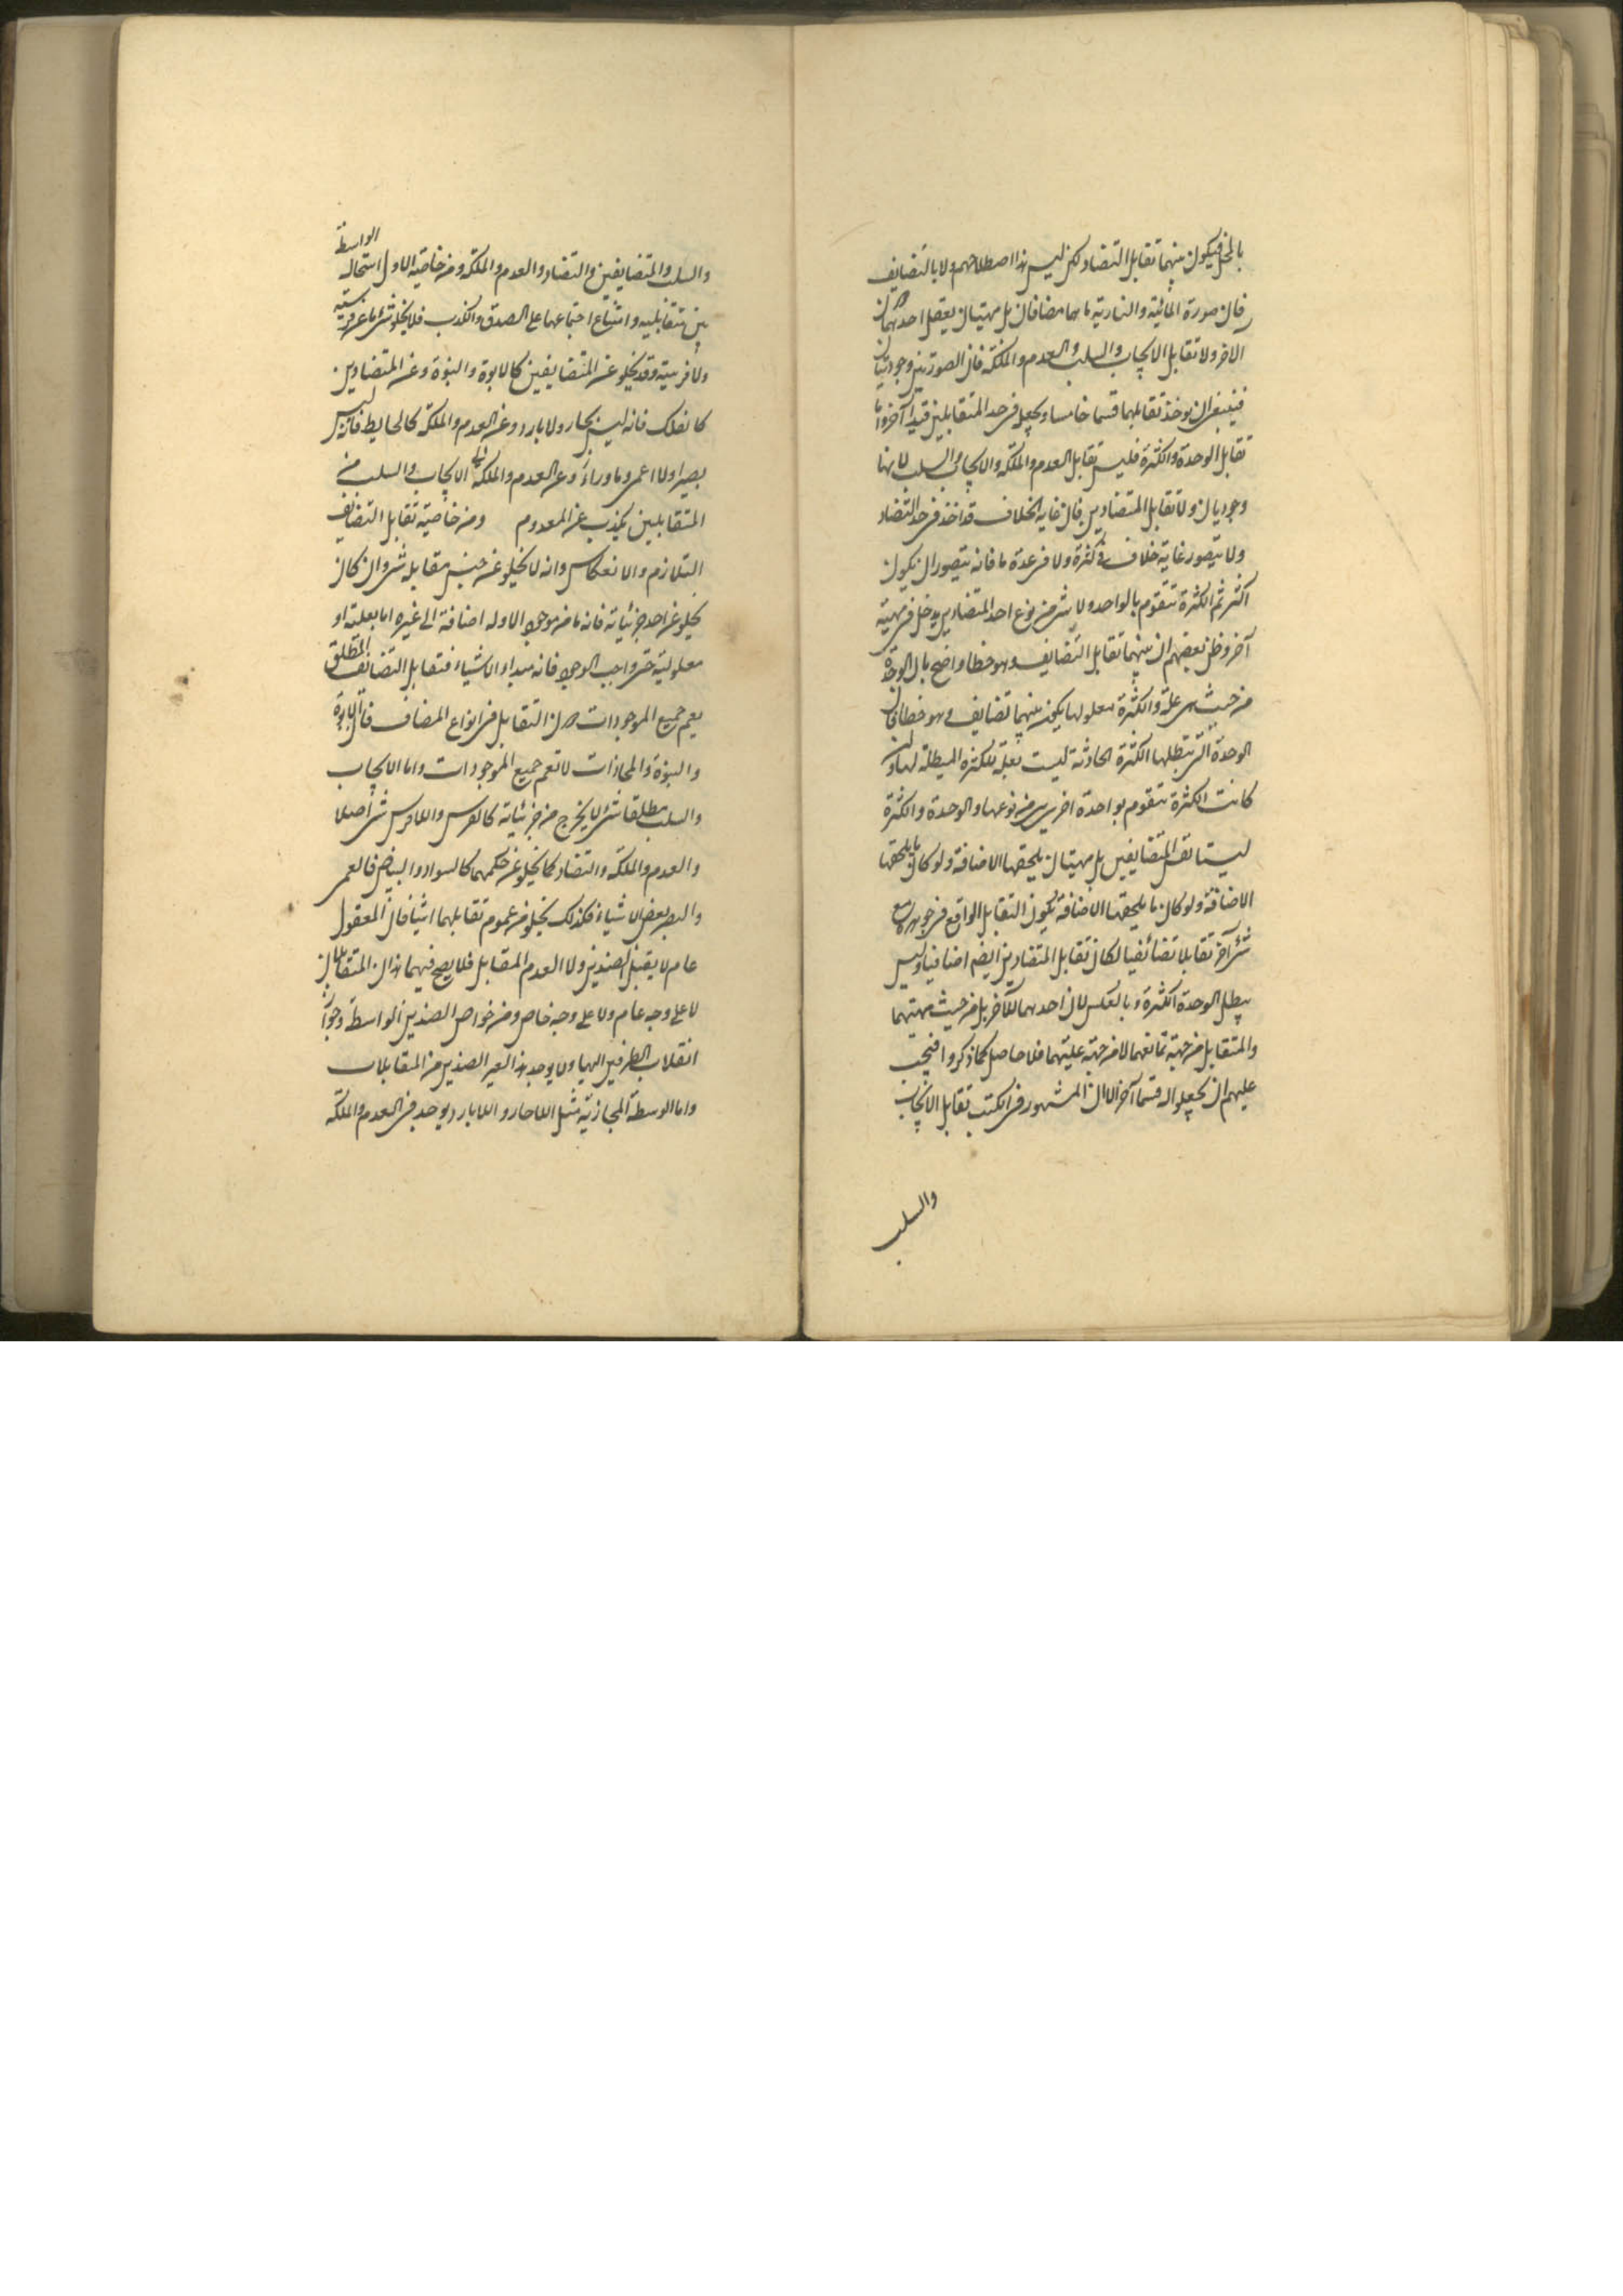 بالمحل فيكون بينهما تقابل التضاد لكن ليس هذا اصطلاحهم ولا بالتضايف
فان صورة المائية والنارية ما هما مضافان بل مهيتان يعقل احدهما دون
الاخر ولا تقابل الايجاب والسلب والعدم والملكة فان الصورتين وجوديتان
فينبغي ان يوخذ تقابلهما قسما خامسا ويجعل في حد المتقابلين قيدا آخر واما
تقابل الوحدة والكثرة فليس تقابل العدم والملكة والايجاب والسلب لانهما
وجوديان ولا تقابل المتضادين فان غاية الخلاف قد اخذ في حد التضاد
ولا يتصور غاية خلاف في كثرة ولا في عدة ما فانه يتصور ان يكون
اكثر ثم الكثرة تتقوم بالواحد ولا شئ من نوع احد المتضادين يدخل في مهية
آخر وظن بعضهم ان بينهما تقابل التضايف وهو خطا واضح بان الوحدة
من حيث هى علة والكثرة معلولها يكون بينهما تضايف وهو خطا فان
الوحدة التى تبطلها الكثرة الحادثة ليست بعلة للكثرة المبطلة لها وان
كانت الكثرة تتقوم بواحدة اخرى من نوعها والوحدة والكثرة
ليستا نفس المتضايفين بل مهيتان يلحقها الاضافة ولو كان ما يلحقها
الاضافة ولو كان ما يلحقها الاضافة يكون التقابل الواقع فى جوهره مع
شئ آخر تقابلا تضائفيا لكان تقابل المتضادين ايضم اضافيا وليس
يبطل الوحدة الكثرة وبالعكس لان احدهما للآخر بل من حيث مهيتهما
والمتقابل من جهة تمانعهما لا من جهة عليتهما فلا حاصل لما ذكروا فيجب
عليهم ان يجعلوا له قسما آخر الا ان المشهور فى الكتب تقابل الايجاب
والسلب
والسلب والمتضايفين والتضاد والعدم والملكة ومن خاصية الاول استحالة الواسطة
بين متقابليه وامتناع اجتماعهما على الصدق والكذب فلا يخلو شئ ما عن فرسيته
ولا فرسيته وقد يخلو عن المتضايفين كالابوة والبنوة وعن المتضادين
كالفلك فانه ليس بحار ولا بارد وعن العدم والملكة كالحايط فانه ليس
بصيرا ولا اعمى وما وراء الايجاب والسلب من
المتقابلين يكذب عن المعدوم ومن خاصية تقابل التضايف
التلازم والانعكاس وانه لا يخلو عن جنس مقابله شئ وان كان
يخلو عن احد جزئياته فانه ما من موجود الا وله اضافة الى غيره اما بعلته او
معلوليته حتى واجب الوجود فانه مبداء الاشياء فتقابل التضائف المطلق
يعم جميع الموجودات دون التقابل فى انواع المضاف فان الابوة
والبنوة والمحاذات لا تعم جميع الموجودات واما الايجاب
والسلب مطلقا شئ لا يخرج من جزئياته كالفرس واللافرس شئ اصلا
والعدم والملكة والتضاد كما يخلو عن حكمهما كالسواد والبياض فى العمى
والبصر بعض الاشياء فكذلك يخلو من عموم تقابلهما اشياء فان المعقول
عام لا يقبل الضدين ولا العدم المقابل فلا يصح فيهما هذان المتقابلان
لا على وجه عام ولا على وجه خاص ومن خواص الضدين الواسطة وجواز
انقلاب الطرفين اليها ولا يوجد هذا لغير الضدين من المتقابلات
واما الوسطة المجازية مثل اللاحار واللابارد يوجد فى العدم والملكة